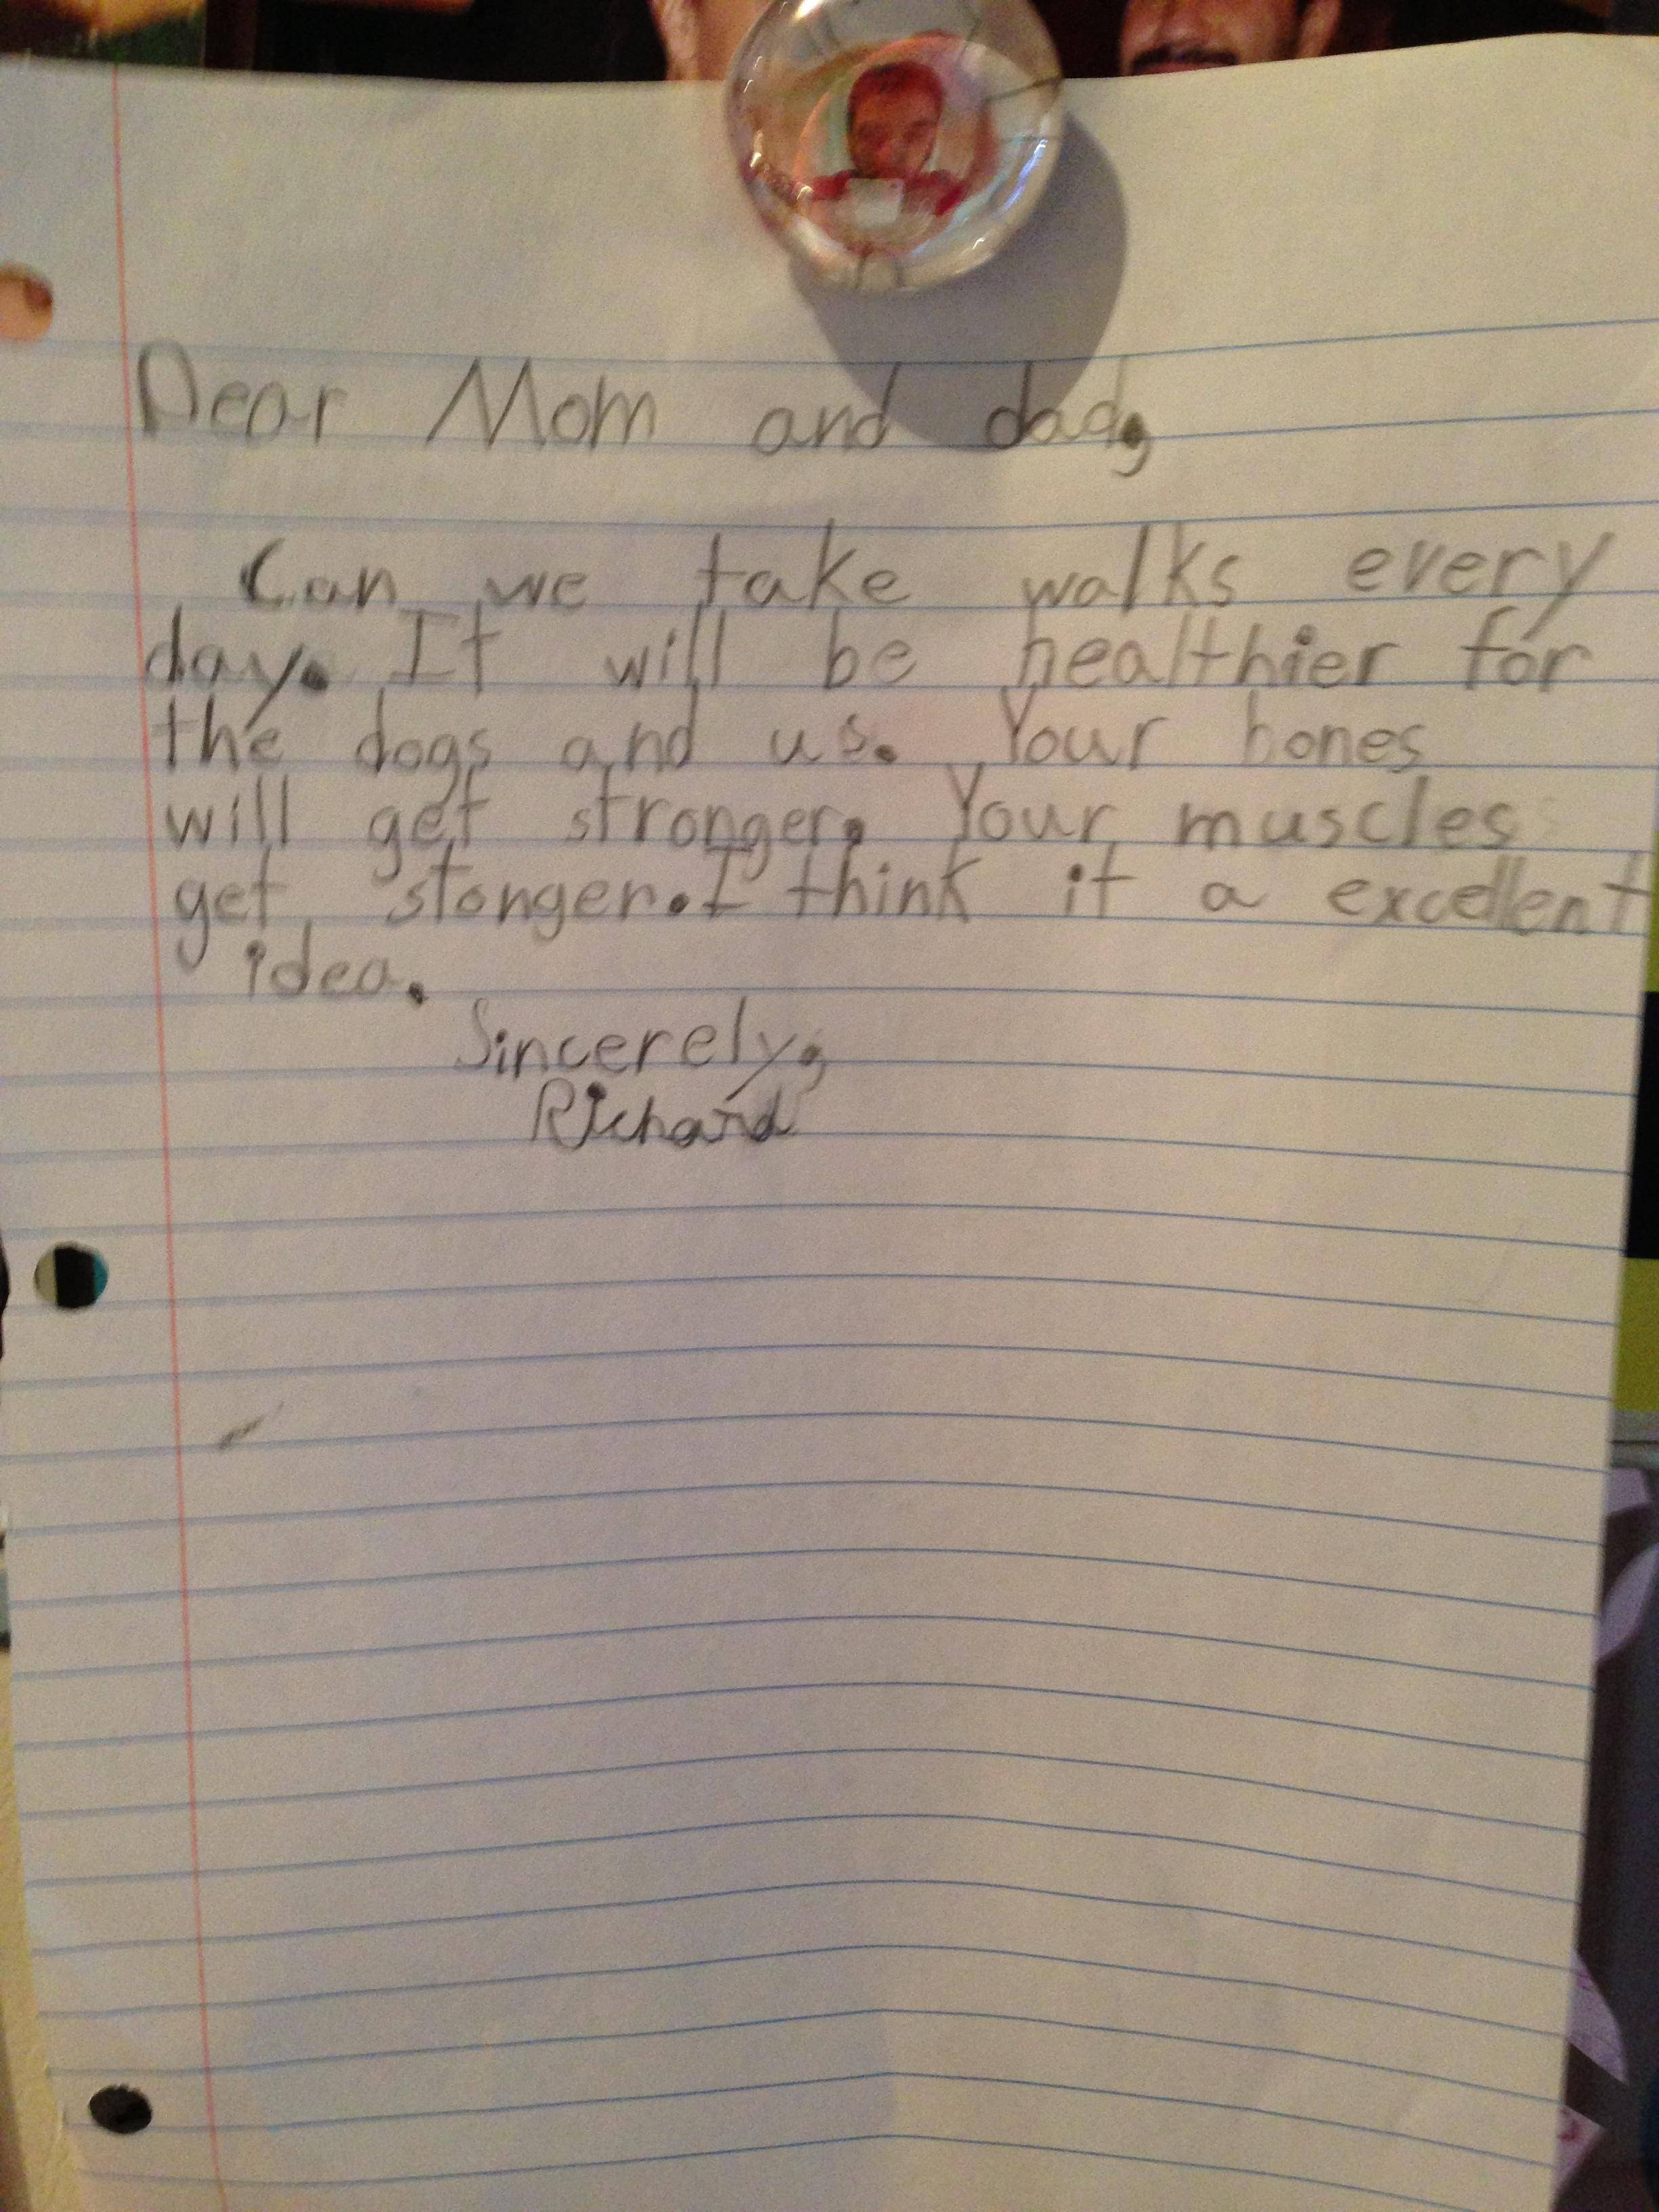 Dear Mom and dad,
Can we take walks every
day. It will be healthier for
the dogs and us. Your bones
will get stronger. Your muscles
get stonger. I think it a excellent
idea.
Sincerely,
Richard